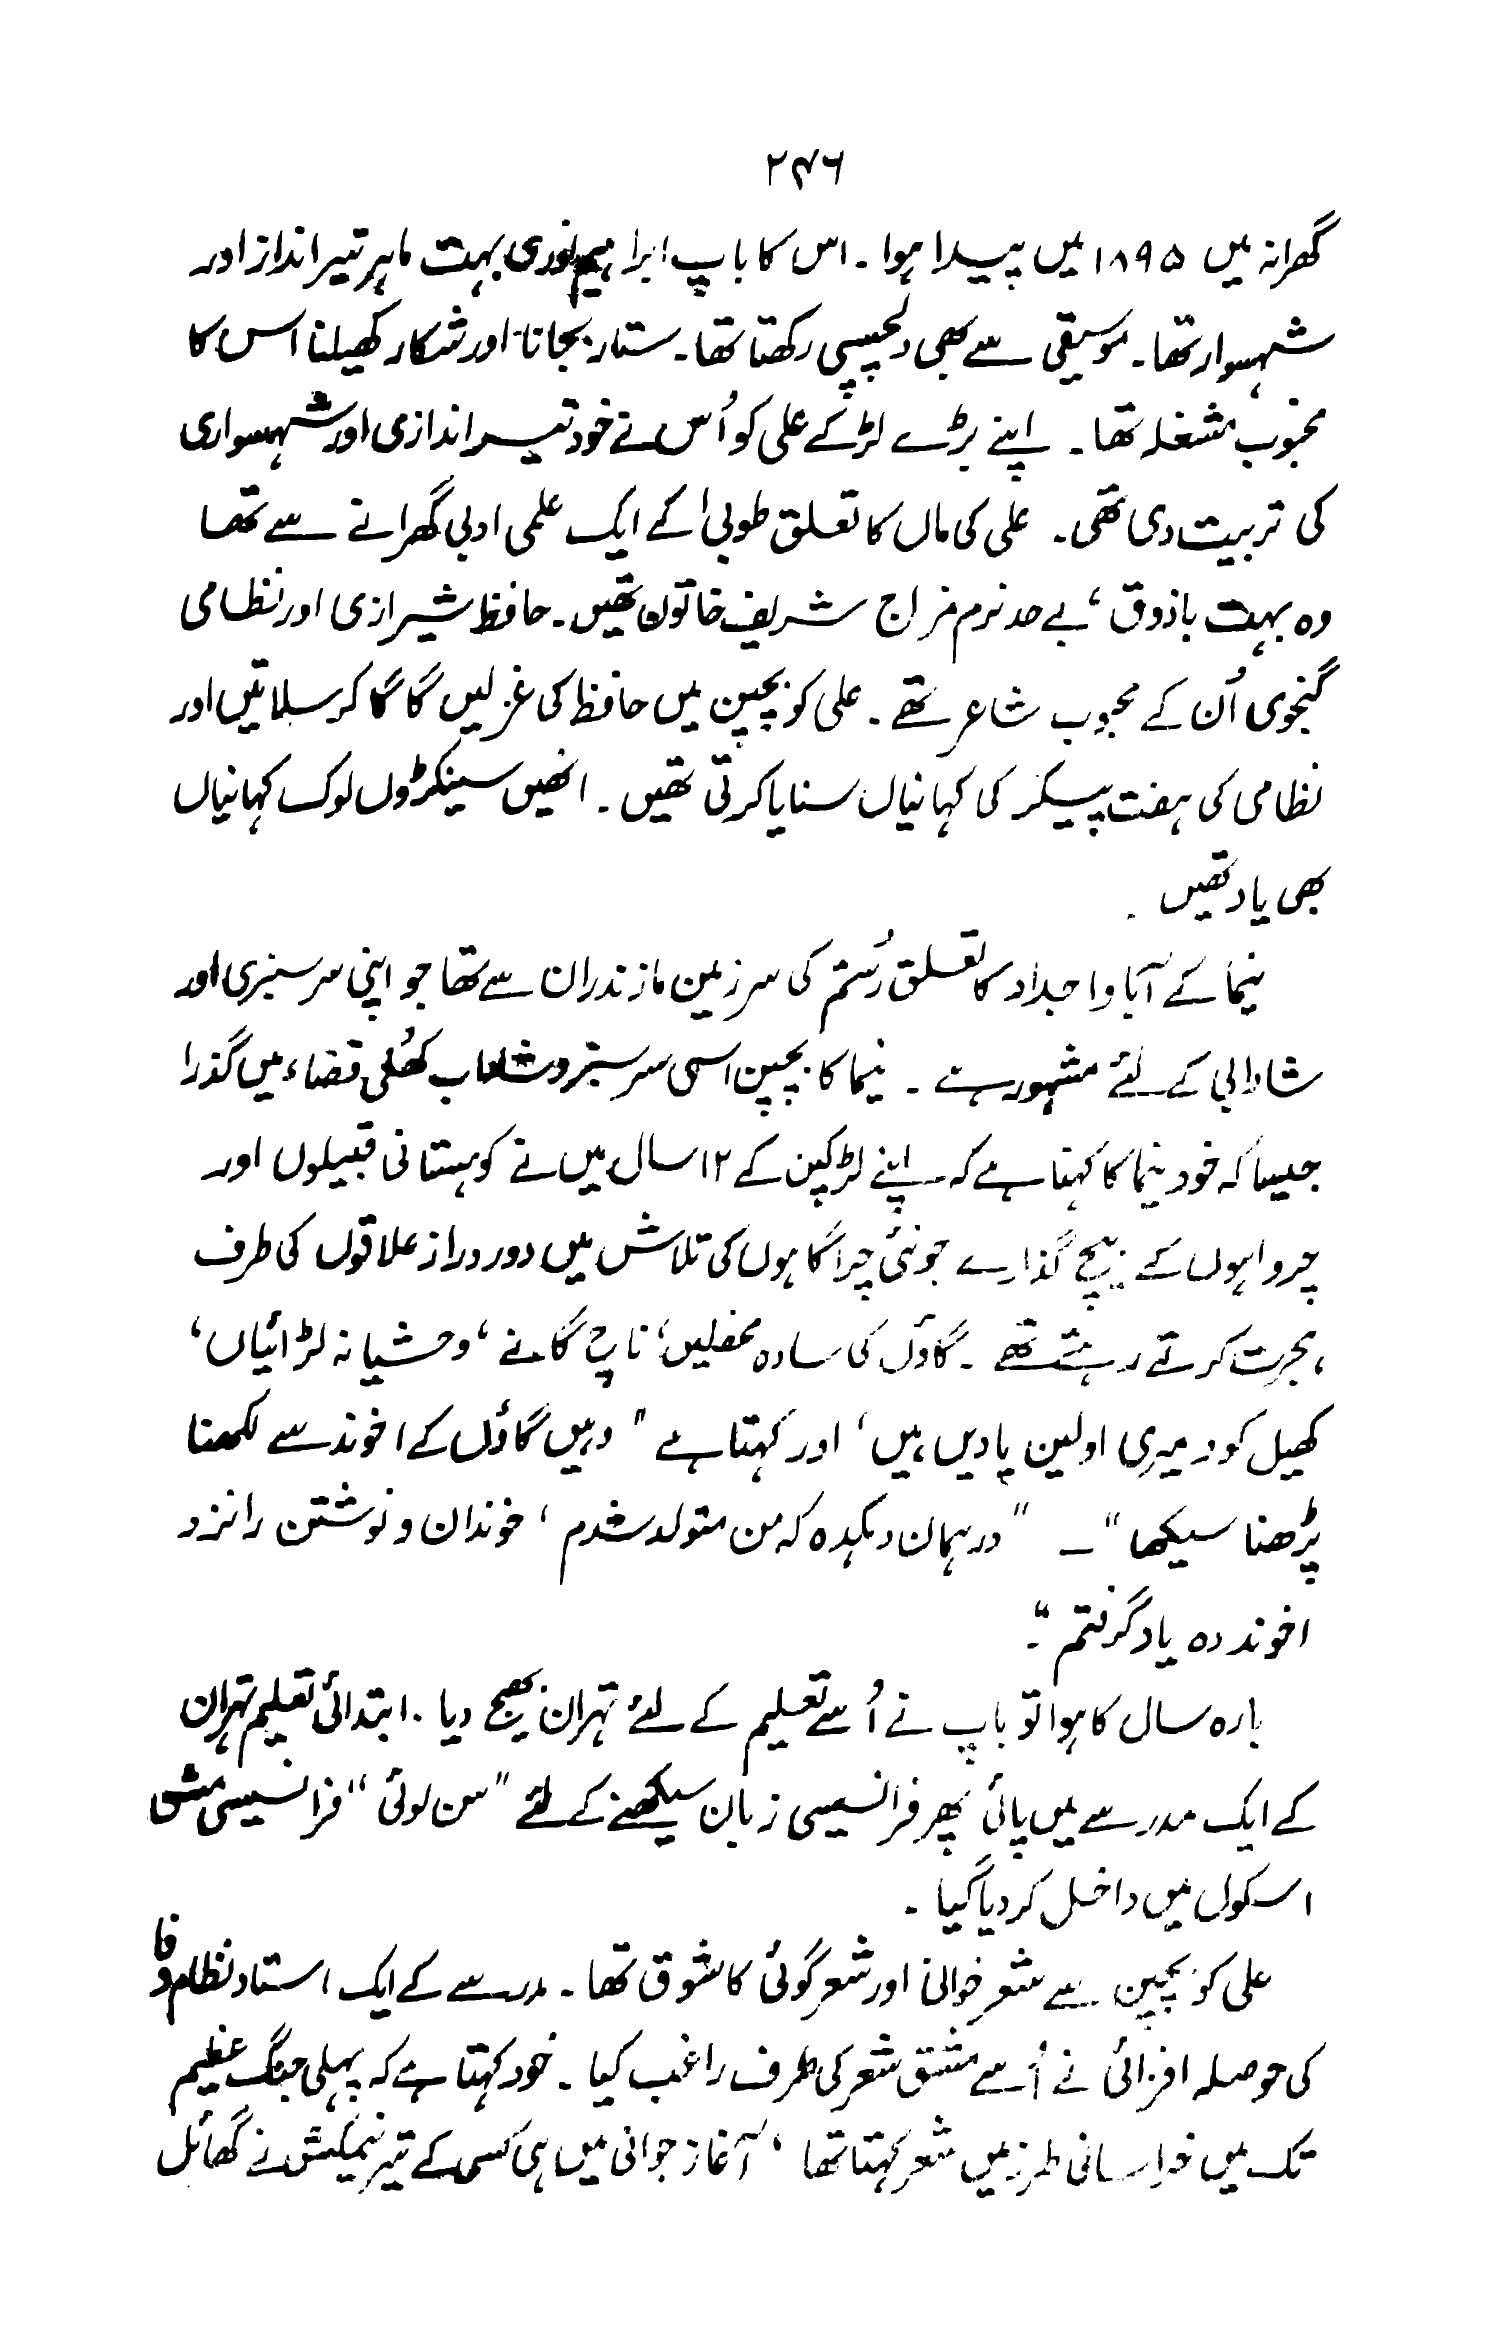 ۲۴۶
گھرانہ میں ۱۸۹۵ میں پیدا ہوا ۔ اس کا باپ ابراہیم نوری بہت ماہر تیر انداز اور
شہسوار تھا ۔ موسیقی سے بھی دلچسپی رکھتا تھا ۔ ستار بجانا اور شکار کھیلنا اس کا
محبوب مشغلہ تھا ۔ اپنے بڑے لڑکے علی کو اُس نے خود تیر اندازی اور شہسواری
کی تربیت دی تھی ۔ علی کی ماں کا تعلق طوبیٰ کے ایک علمی ادبی گھرانے سے تھا
وہ بہت باذوق ، بے حد نرم مزاج شریف خاتون تھیں ۔ حافظ شیرازی اور نظامی
گنجوی اُن کے محبوب شاعر تھے ۔ علی کو بچپن میں حافظ کی غزلیں گا گا کر سلاتیں اور
نظامی کی ہفت پیکر کی کہانیاں سنایا کرتی تھیں ۔ انھیں سینکڑوں لوک کہانیاں
بھی یاد تھیں ۔
نیما کے آبا و اجداد کا تعلق رُستم کی سرزمین ماژندران سے تھا جو اپنی سرسبزی اور
شادابی کے لئے مشہور ہے ۔ نیما کا بچپن اسی سرسبز و شاداب کھُلی فضاء میں گذرا
جیسا کہ خود نیما کا کہنا ہے کہ اپنے لڑکپن کے ۱۲ سال میں نے کوہستانی قبیلوں اور
چرواہوں کے بیچ گذارے جو نئی چراگاہوں کی تلاش میں دور دراز علاقوں کی طرف
ہجرت کرتے رہتے تھے ۔ گاؤں کی سادہ محفلیں ، ناچ گانے ، وحشیانہ لڑائیاں ،
کھیل کود میری اولین یادیں ہیں ، اور کہتا ہے " وہیں گاؤں کے اخوند سے لکھنا
پڑھنا سیکھا " ــ " در ہمان دہکدہ کہ من متولد شدم ، خوندان و نوشتن را نزد
اخوند دہ یاد گرفتم "۔
بارہ سال کا ہوا تو باپ نے اُسے تعلیم کے لئے تہران بھیج دیا ۔ ابتدائی تعلیم تہران
کے ایک مدرسے میں پائی پھر فرانسیسی زبان سیکھنے کے لئے " سن لوئی " فرانسیسی مشن
اسکول میں داخل کر دیا گیا ۔
علی کو بچپن سے شعر خوانی اور شعر گوئی کا شوق تھا ۔ مدرسے کے ایک استاد نظام وفا
کی حوصلہ افزائی نے اُسے مشق شعر کی طرف راغب کیا ۔ خود کہتا ہے کہ پہلی جنگ عظیم
تک میں خراسانی طرز میں شعر کہتا تھا ، آغاز جوانی میں ہی کسی کے تیر نیمکش نے گھائل